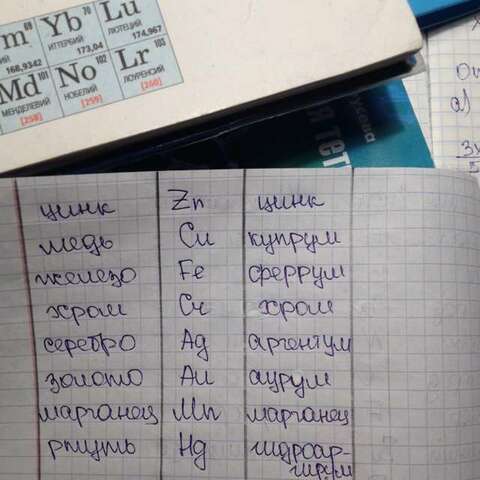 69 70
m Yb Lu
ИТТЕРБИЙ ЛЮТЕЦИЙ
168,9342 173,04 174,967
101 102 103
Md No Lr
МЕНДЕЛЕВИЙ НОБЕЛИЙ ЛОУРЕНСИЙ
[258] [259] [260]
я тет
а)
цинк Zn цинк
медь Cu купрум
железо Fe феррум
хром Cr хром
серебро Ag аргентум
золото Au аурум
марганец Mn марганец
ртуть Hg гидрар-
гирум